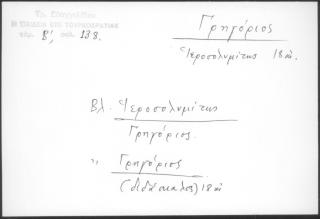 Τρ. Ευαγγελίδου
Η ΠΑΙΔΕΙΑ ΕΠΙ ΤΟΥΡΚΟΚΡΑΤΙΑΣ
τόμ. Β', σελ. 138.
Γρηγόριος
Ἱεροσολυμίτης 18 αἰ.
Βλ. Ἱεροσολυμίτης
Γρηγόριος.
" Γρηγόριος
(διδάσκαλος) 18 αἰ